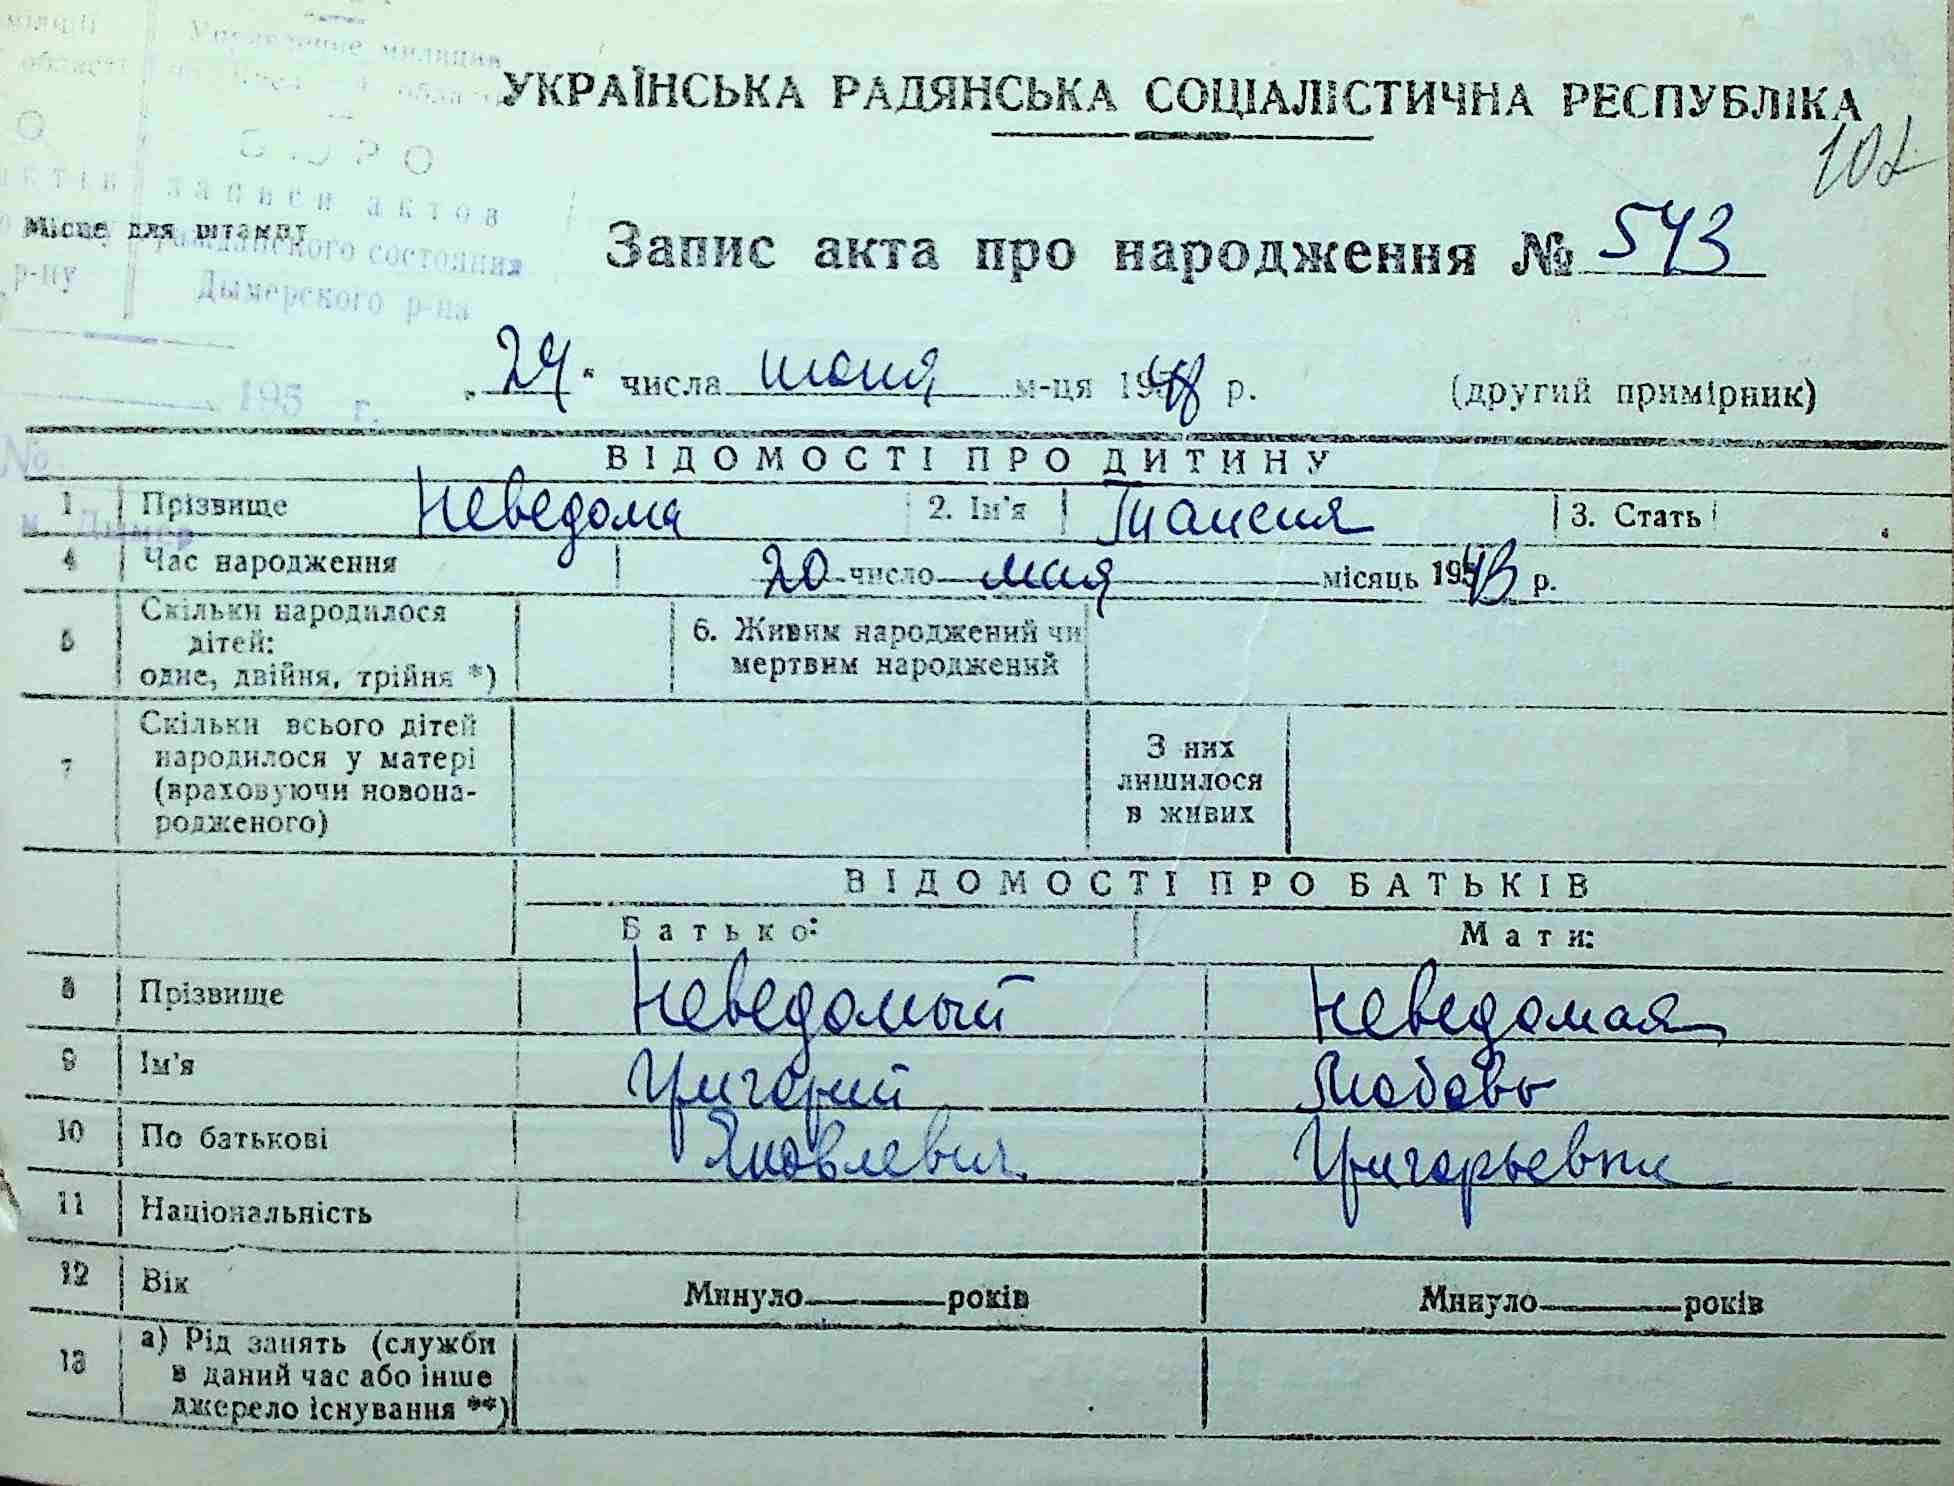 міліції Управление милиции
області по обла
О БЮРО
актів записи актов
Місце для штампу гражданского состояния
р-ну Дымерского р-на
195 г.
№
м. Димер
УКРАЇНСЬКА РАДЯНСЬКА СОЦІАЛІСТИЧНА РЕСПУБЛІКА
102
Запис акта про народження № 543
„24“ числа июня м-ця 1948 р. (другий примірник)
ВІДОМОСТІ ПРО ДИТИНУ
1 Прізвище Неведома 2. Ім'я Таисия 3. Стать
4 Час народження 20 число мая місяць 1943 р.
5 Скільки народилося
дітей:
одне, двійня, трійня *)
6. Живим народжений чи
мертвим народжений
7 Скільки всього дітей
народилося у матері
(враховуючи новона-
родженого)
З них
лишилося
в живих
ВІДОМОСТІ ПРО БАТЬКІВ
Батько: Мати:
8 Прізвище Неведомый Неведомая
9 Ім'я Григорий Любовь
10 По батькові Яковлевич Григорьевна
11 Національність
12 Вік Минуло років Минуло років
13 а) Рід занять (служби
в даний час або інше
джерело існування **)